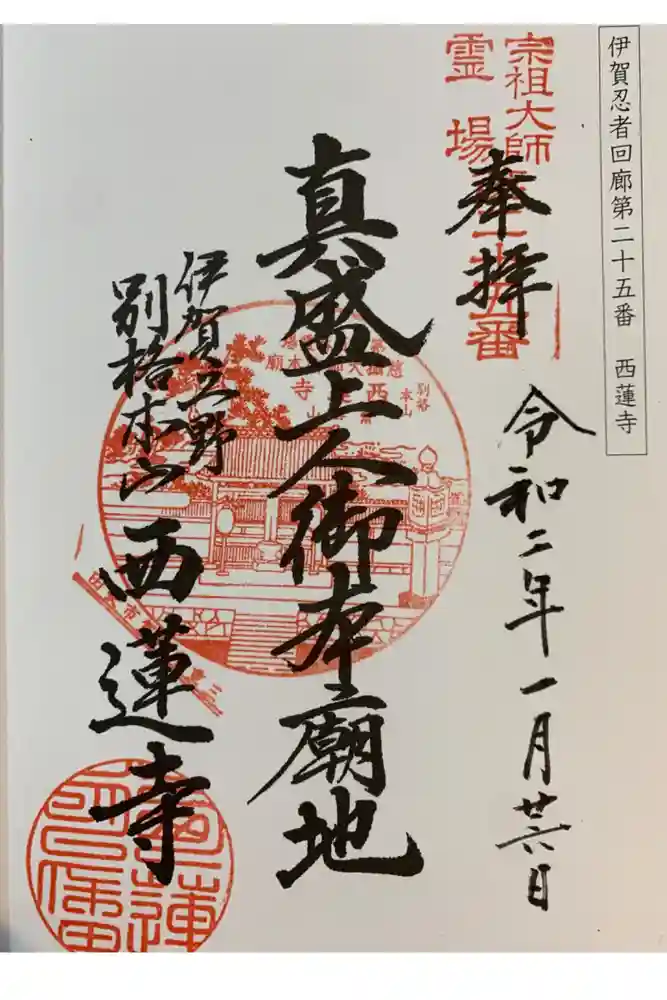 伊賀忍者回廊第二十五番　西蓮寺
宗祖大師
霊場
番
奉拝
令和二年一月廿六日
真盛上人御本廟地
伊賀上野
別格本山西蓮寺